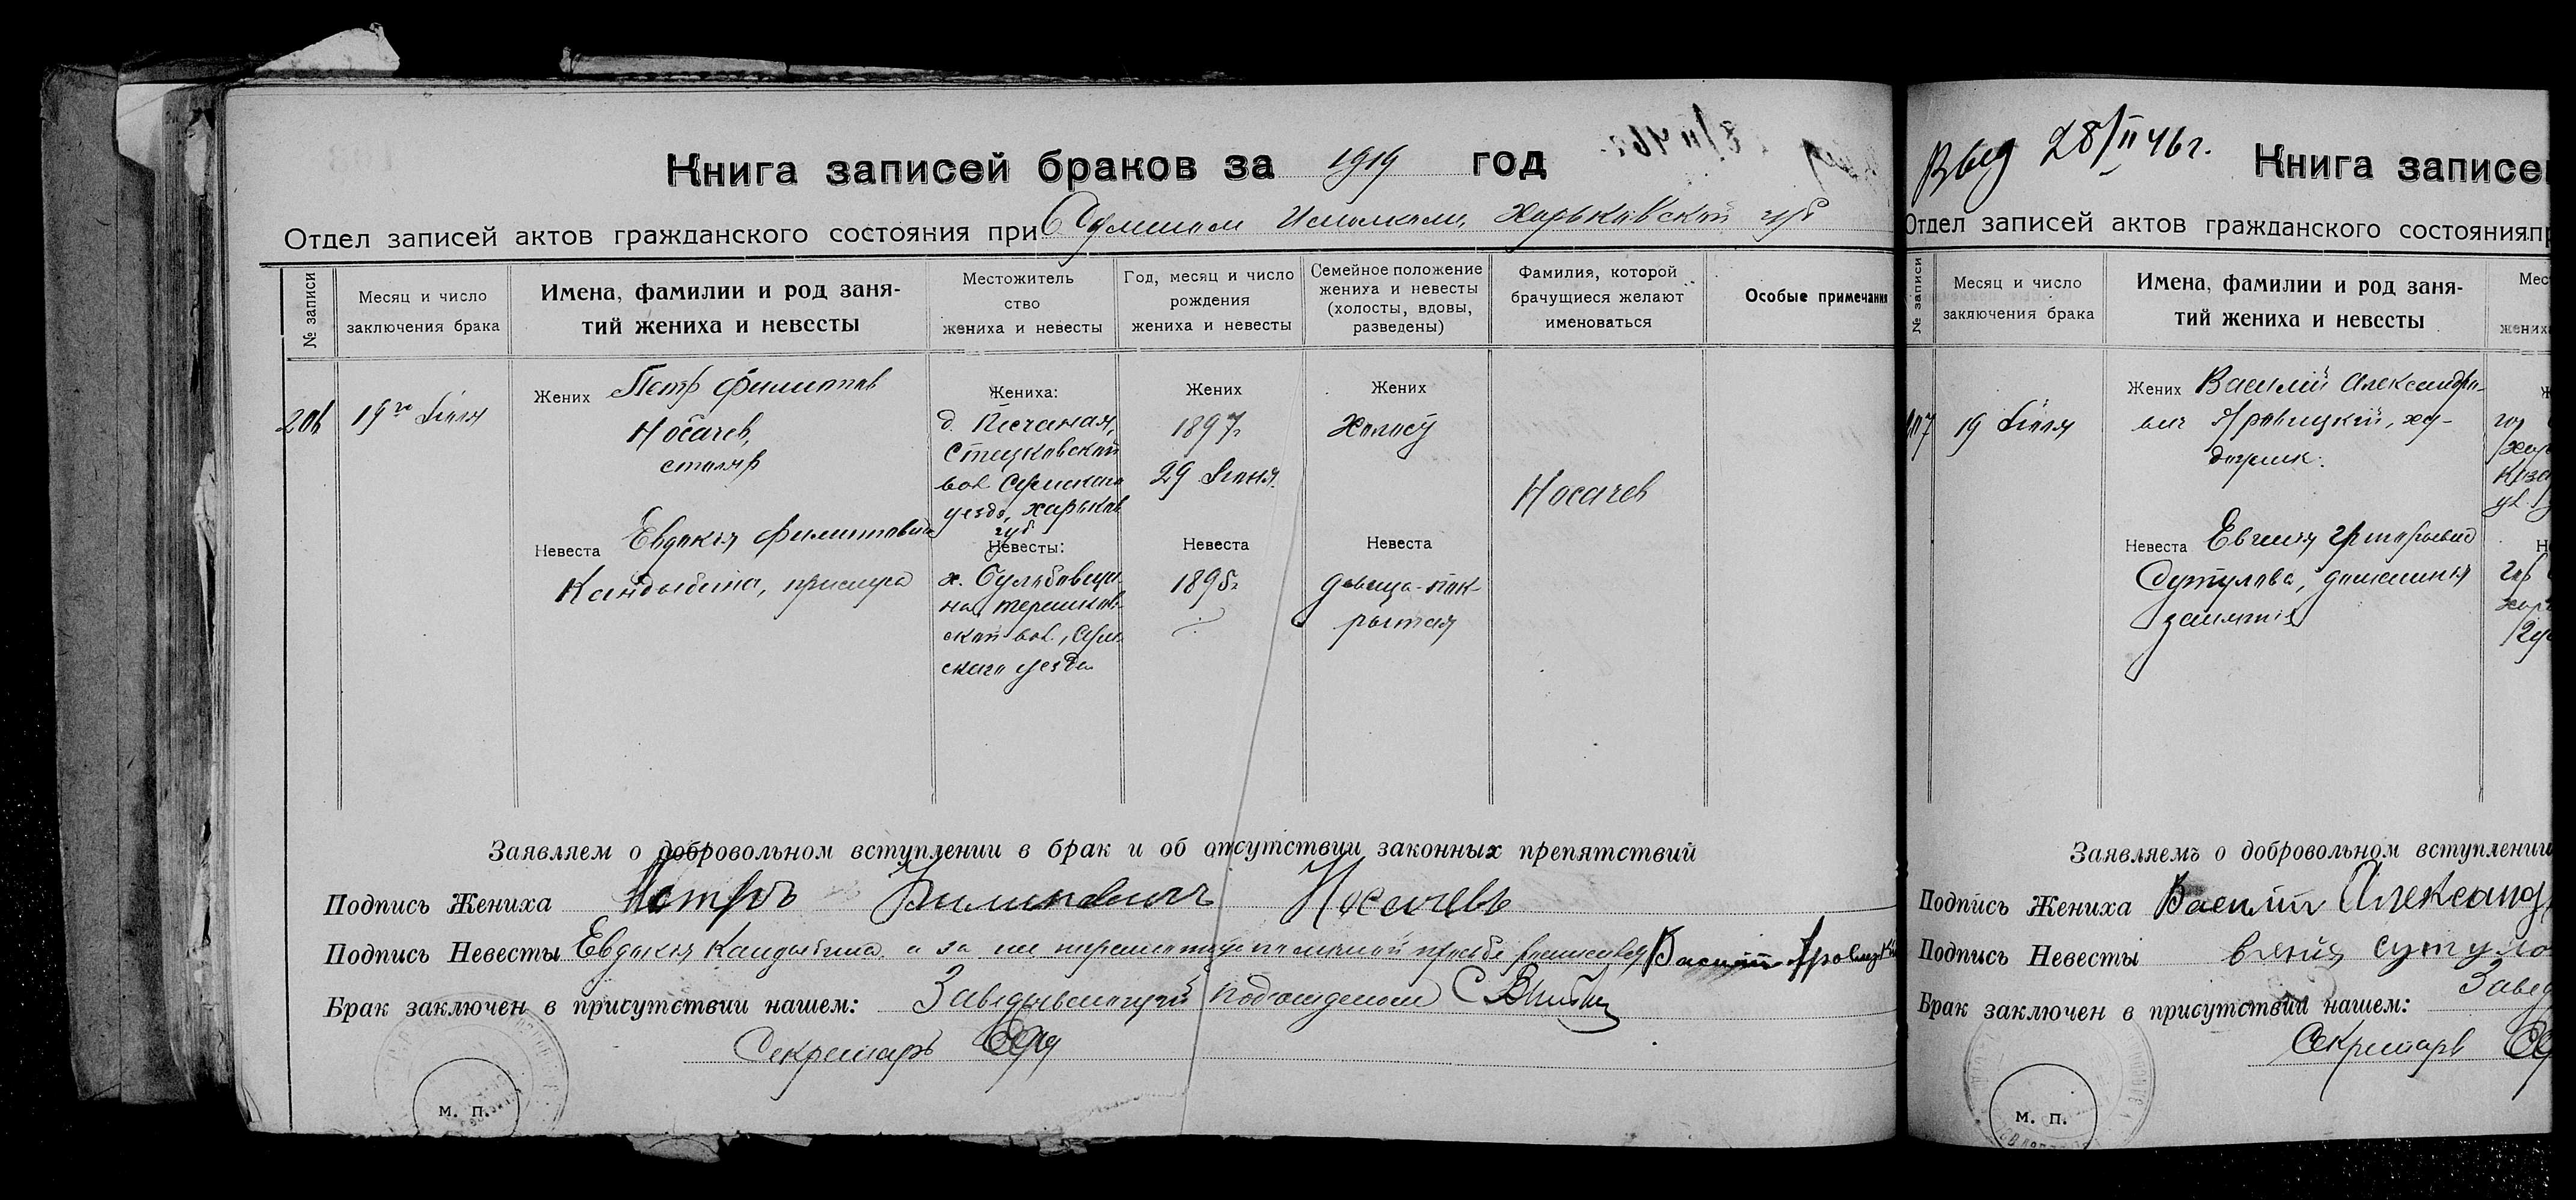 Книга записей браков за 1919 год
Отдел записей актов гражданского состояния при Сумском Исполкоме, Харьковской губ
№ записи
Месяц и число заключения брака
Имена, фамилии и род занятий жениха и невесты
Местожительство жениха и невесты
Год, месяц и число рождения жениха и невесты
Семейное положение жениха и невесты (холосты, вдовы, разведены)
Фамилия, которой брачущиеся желают именоваться
Особые примечания
206
19го Июля
Жених Петр Филиппов
Носачев,
столяр
Невеста Евдокия Филипповна
Кандыбина, прислуга
Жениха:
д. Песчаная,
Стецковской
вол. Сумского
уезда, Харьков
губ
Невесты:
х.
вол., Сум
ского уезда
Жених
1897г
29 Июня
Невеста
1895г
Жених
Холост
Невеста
девица-
Носачев
Заявляем о добровольном вступлении в брак и об отсутствии законных препятствий
Подпись Жениха Петръ Филиповичъ Носачевъ
Подпись Невесты Евдокия Кандыбина а за не по личной просьбе росписался Василий Яровицкий
Брак заключен в присутствии нашем: Заведывающий подотделом
Секретарь
м. п.
Выд 28/II 46 г.
Книга записей
Отдел записей актов гражданского состояния пр
№ записи
Месяц и число заключения брака
Имена, фамилии и род занятий жениха и невесты
207
19 Июля
Жених Василий Александро-
вич Яровицкий, ху-
дожник.
Невеста Евгения Григорьевна
Сутулова, домашния
занятия
Заявляемъ о добровольном вступлении
Подпись Жениха Василий Александ
Подпись Невесты Сутуло
Брак заключен в присутствии нашем: Завед
Секретарь
м. п.